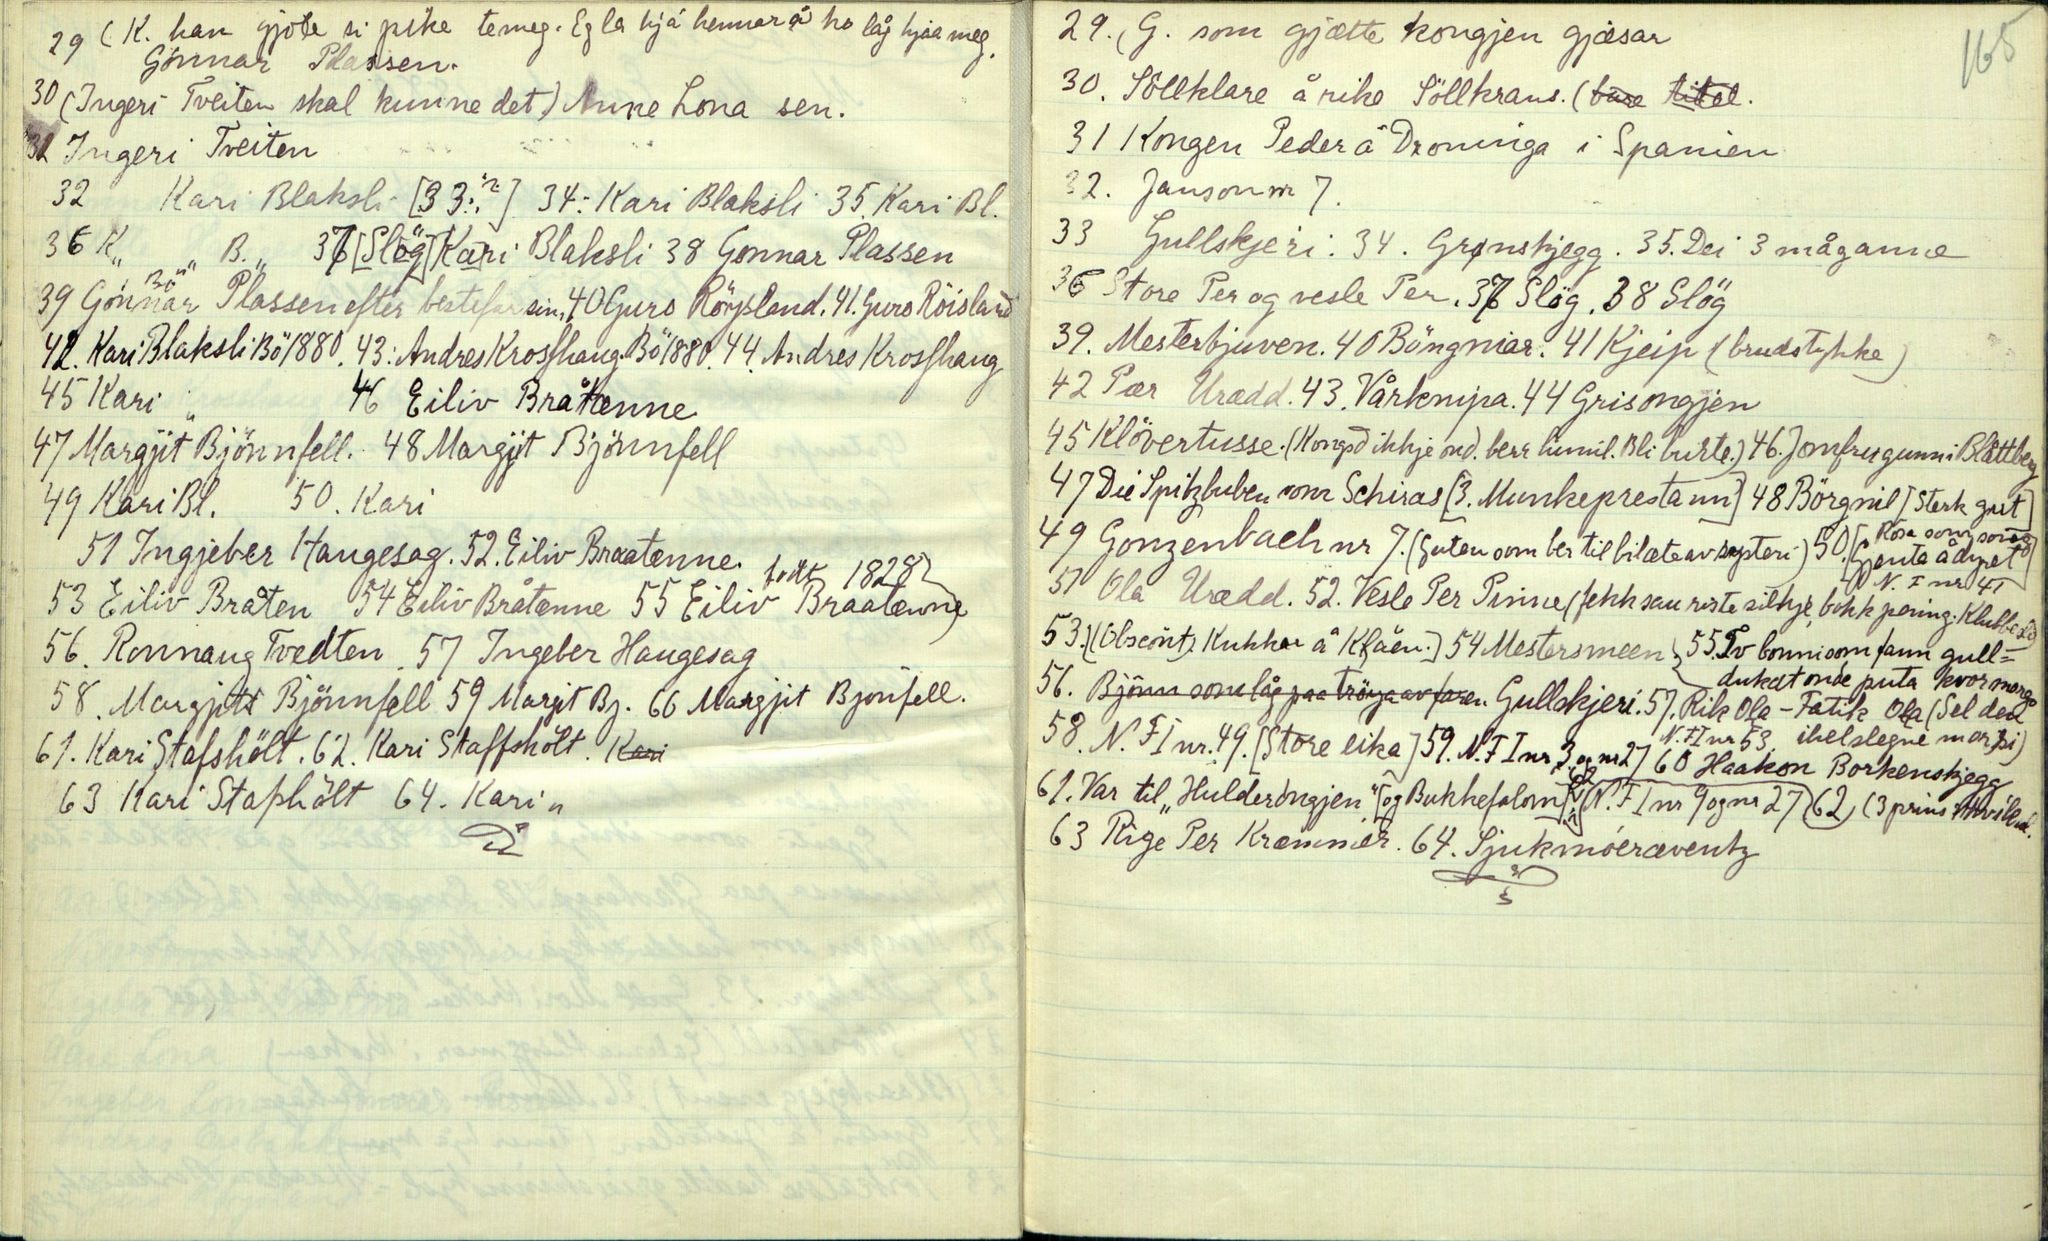 29 (K. han gjöte si pike te meg. Eg la hjå hennar å ho låg hjaa meg.
Gönnar Plassen.
30 (Ingeri Tveiten skal kunne det) Anne Lona sen.
31 Ingeri Tveiten
32 Kari Blaksli [33:?] 34: Kari Blaksli 35. Kari Bl.
36 K„ „ B.„ 37 [Slög] Kari Blaksli 38 Gonnar Plassen
39 Gönnar Bö Plassen efter bestefar sin, 40 Guro Röysland. 41. Guro Röisland
42. Kari Blaksli Bö 1880. 43: Andres Krosshaug Bö 1880. 44. Andres Krosshaug
45 Kari „ 46 Eiliv Bråtenne
47 Margjit Bjönnfell. 48 Margjit Bjönnfell
49 Kari Bl. 50. Kari
51 Ingjeber Haugesag. 52. Eiliv Braatenne.
53 Eiliv Bråten 54 Eiliv Båtenne 55 Eiliv Braatenne födt 1828
56. Ronnaug Tvedten. 57 Ingeber Haugesag
58. Margjitt Bjönnfell 59 Margit Bj. 66 Margjit Bjonfell.
61. Kari Stafshölt. 62. Kari Staffshölt. Kari
63 Kari Stafshölt 64. Kari „
165
29. (G. som gjætte kongjen gjæsar
30. Söllklare å rike Söllkrans. (bare titel.
31 Kongen Peder å Droninga i Spanien
32. Janson nr 7.
33 Gullskjeri. 34. Grønskjegg. 35. Dei 3 måganne
36 Store Per og vesle Per. 37 Slög. 38 Slög
39. Mesterbjuven. 40 Böngmiar. 41 Kjeip (brudstykke)
42 Pær Urædd. 43. Vårknipa. 44 Grisongjen
45 Klövertusse. (Kongsd ikkje ond. berr himil. Bli burte.) 46. Jomfrugunn i Blåttberg
47 Die Spitzbuben von Schiras [3. Munkeprestann] 48 Börgmil [Sterk gut]
49 Gonzenbach nr 7. (Guten som ber til bilæte av systeri) 50. [Rosa som song Gjenta å dyret N. F. I nr 41
51 Ola Urædd. 52. Vesle Per Pinne (fekk sau riste silkje, bokk pening. Klubbe
53. (Obscönt) Kukkar å Kråen.] 54 Mestersmeen 55. Tv bonni som fann gull=
dukat onde puta kvor morgo
56. Bjönn som låg paa tröya av faren. Gullskjeri. 57. Rik Ola - Fatik Ola (Sel den
N. F I nr 53. ihelslegne mor si)
58. N. F I nr. 49. [Store eika] 59. N. F I nr 3 og nr 27 60 Haakon Borkenskjegg
61. Var til „Hulderongjen" [og Bukkefalom] (N. F I nr 9 og nr 27) 62) (3 prins
63 Rige Per Kræmmer. 64. Sjukmöeræventy